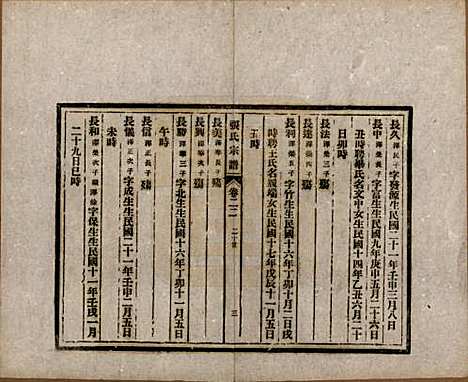 長久 澤民子 字發源生民國二十一年壬申三月八日
長申 澤榮次子 字富生生民國九年庚申五月二十六日
丑時聘畢氏名文中女生民國十四年乙丑六月二十
日卯時
長法 澤榮三子 殤
長達 殤
長羽 澤 長子 字竹生生民國十六年丁卯十月二日戌
時聘王氏名 瑞女生民國十七年戊辰十一月五日
玉時
張氏宗譜 卷二二 三
長美 殤
長興 殤
長勝 三子 字北生生民國十六年丁卯十一月五日
午時
長信 澤正長子 殤
長儀 澤正次子 字成生生民國二十一年壬申二月五日
未時
長和 澤 次子 字保生生民國十一年壬戌一月
二十九日巳時